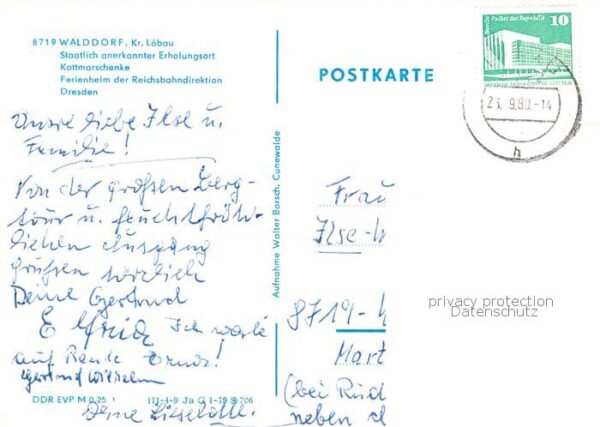 8719 WALDDORF, Kr. Löbau
Staatlich anerkannter Erholungsort
Kottmarschenke
Ferienheim der Reichsbahndirektion
Dresden
POSTKARTE
Berlin Palast der Republik
10
23. 9.80.-14
h
Unsre liebe Ilse u.
Familie!
Von der großen Berg-
tour u. feuchtfröh-
lichen Ausgang
grüßen herzlich
Deine Gertrud
Elfried Ich warte
auf Rente
Gertrud Wilhelm
Deine Lieselotte.
Aufnahme Walter Borsch, Cunewalde
Frau
Ilse-
8719-
Mart
(bei Rud
neben
privacy protection
Datenschutz
DDR EVP M 0,25
III-4-9 Ja G 1-79 S 706